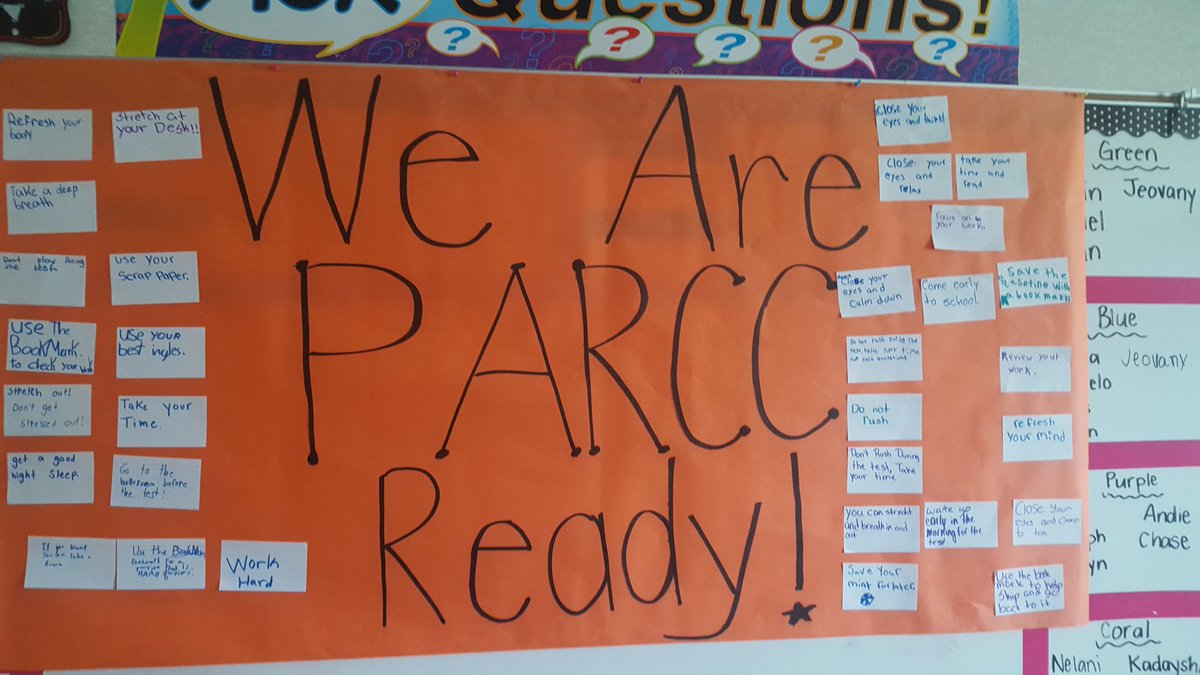 Ask
Questions!
?
?
?
?
?
We Are
PARCC
Ready!
Refresh your
body
Stretch at
your Desk!!
Take a deep
breath
Don't play During
the test
use your
Scrap Paper.
USE The
BookMark.
to check your work
Use your
best ingles.
Stretch out!
Don't get
Stressed out!
Take your
Time.
get a good
night Sleep.
Go to the
bathroom before
the test!
If you want
you can take a
Break
Use the BookMark
HARD
Work
Hard
Close your
eyes and think!
Close your
eyes and
relax
take your
time and
read
Focus on
your work.
Close your
eyes and
Calm down
Come early
to school.
Save the
with
bookmark
Do not rush During the
test, take your time
Review your
work.
Do not
rush
refresh
your mind
Don't Rush During
the test, Take
your time
you can strecht
and breath in and
out
wake up
early in the
morning for the
test
Close your
eyes and count
to ten
Save your
mint for later.
Use the book
mark to help
Skip and go
back to it.
Green
n Jeovany
el
n
Blue
a Jeovany
elo
n
Purple
Andie
ph Chase
yn
Coral
Nelani Kadaysh